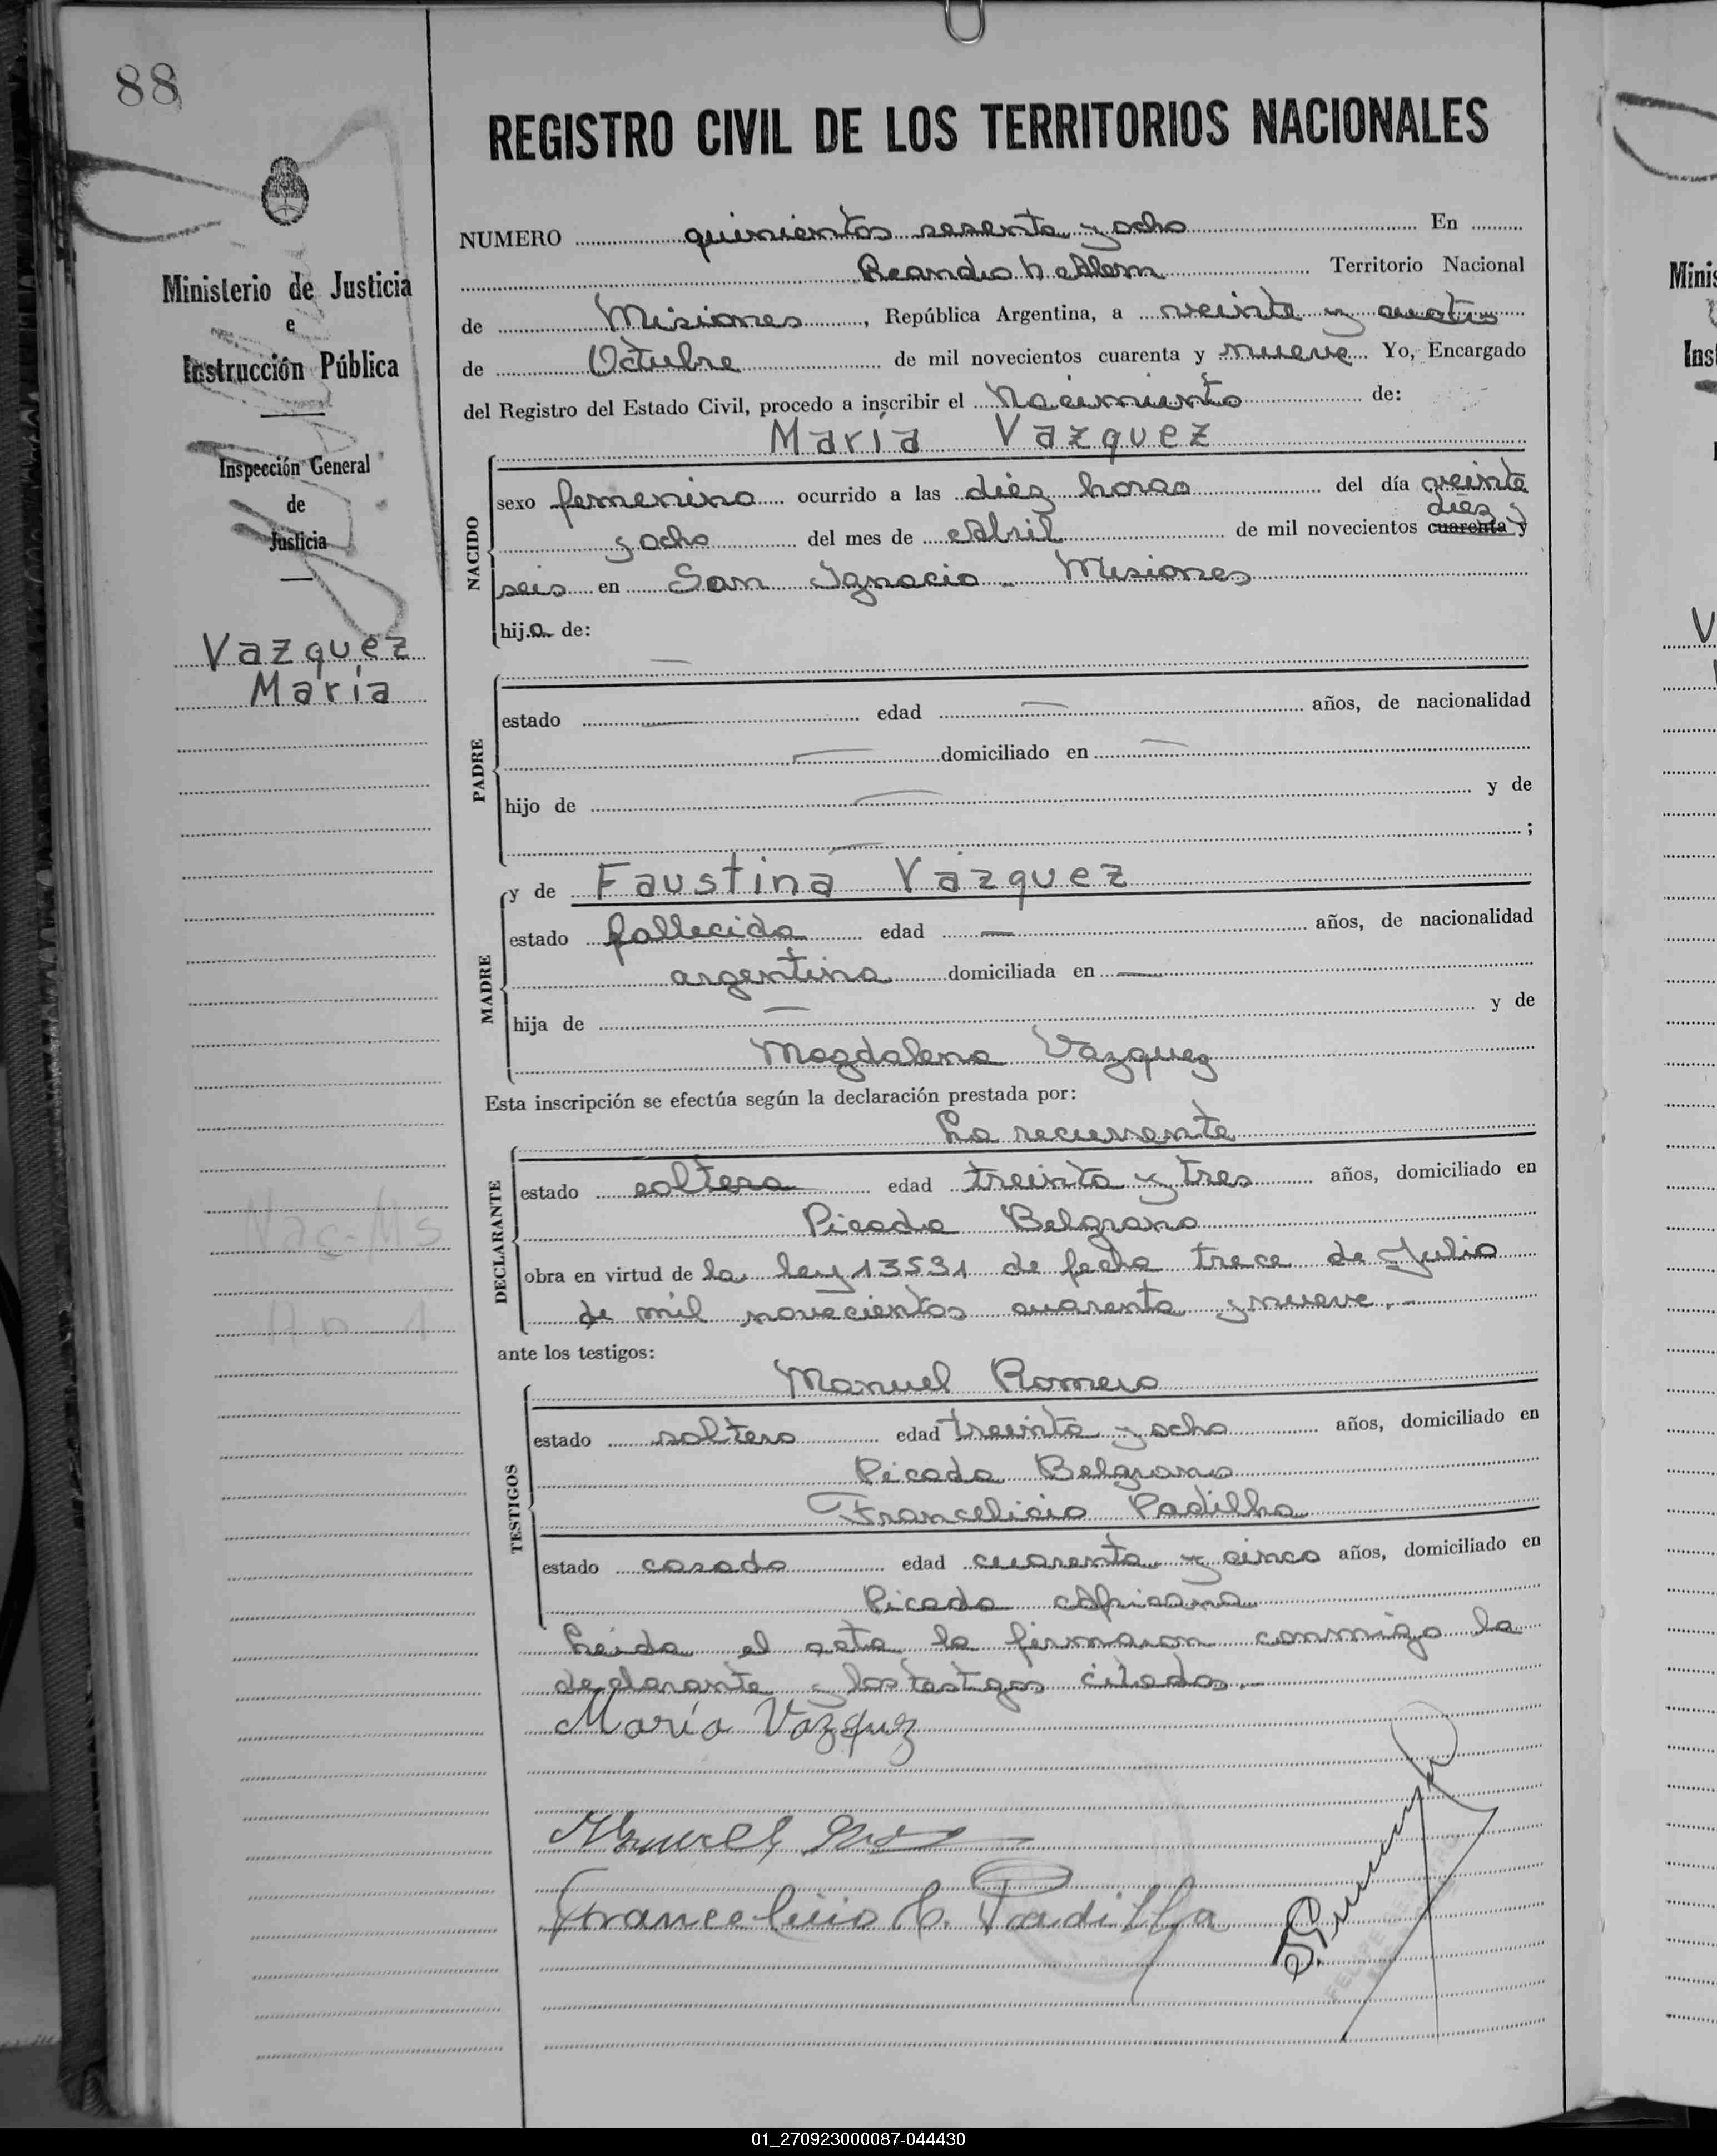 88
REGISTRO CIVIL DE LOS TERRITORIOS NACIONALES
Ministerio de Justicia
e
Instrucción Pública
Inspección General
de
Justicia
Vazquez
María
NUMERO quinientos sesenta y ocho En
Leandro N Alem Territorio Nacional
de Misiones, República Argentina, a veinte y cuatro
de Octubre de mil novecientos cuarenta y nueve Yo, Encargado
del Registro del Estado Civil, procedo a inscribir el Nacimiento de:
María Vazquez
NACIDO
sexo femenino ocurrido a las diéz horas del día veinte
diez y
y ocho del mes de Abril de mil novecientos cuarenta y
seis en San Ignacio - Misiones
hija de:
PADRE
estado edad años, de nacionalidad
domiciliado en
hijo de y de
;
MADRE
y de Faustina Vazquez
estado fallecida edad — años, de nacionalidad
argentina domiciliada en —
hija de — y de
Magdalena Vazquez
Esta inscripción se efectúa según la declaración prestada por:
La recurrente
DECLARANTE
estado soltera edad treinta y tres años, domiciliado en
Picada Belgrano
obra en virtud de la ley 13531 de fecha trece de Julio
de mil novecientos cuarenta y nueve.-
ante los testigos:
TESTIGOS
Manuel Romero
estado soltero edad treinta y ocho años, domiciliado en
Picada Belgrano
Francelicio Padilha
estado casado edad cuarenta y cinco años, domiciliado en
Picada Africana
Leida el acta la firmaron conmigo la
declarante y los testigos citados.-
María Vazquz
Francelicio Padilha
Nac-Ms
01_270923000087-044430